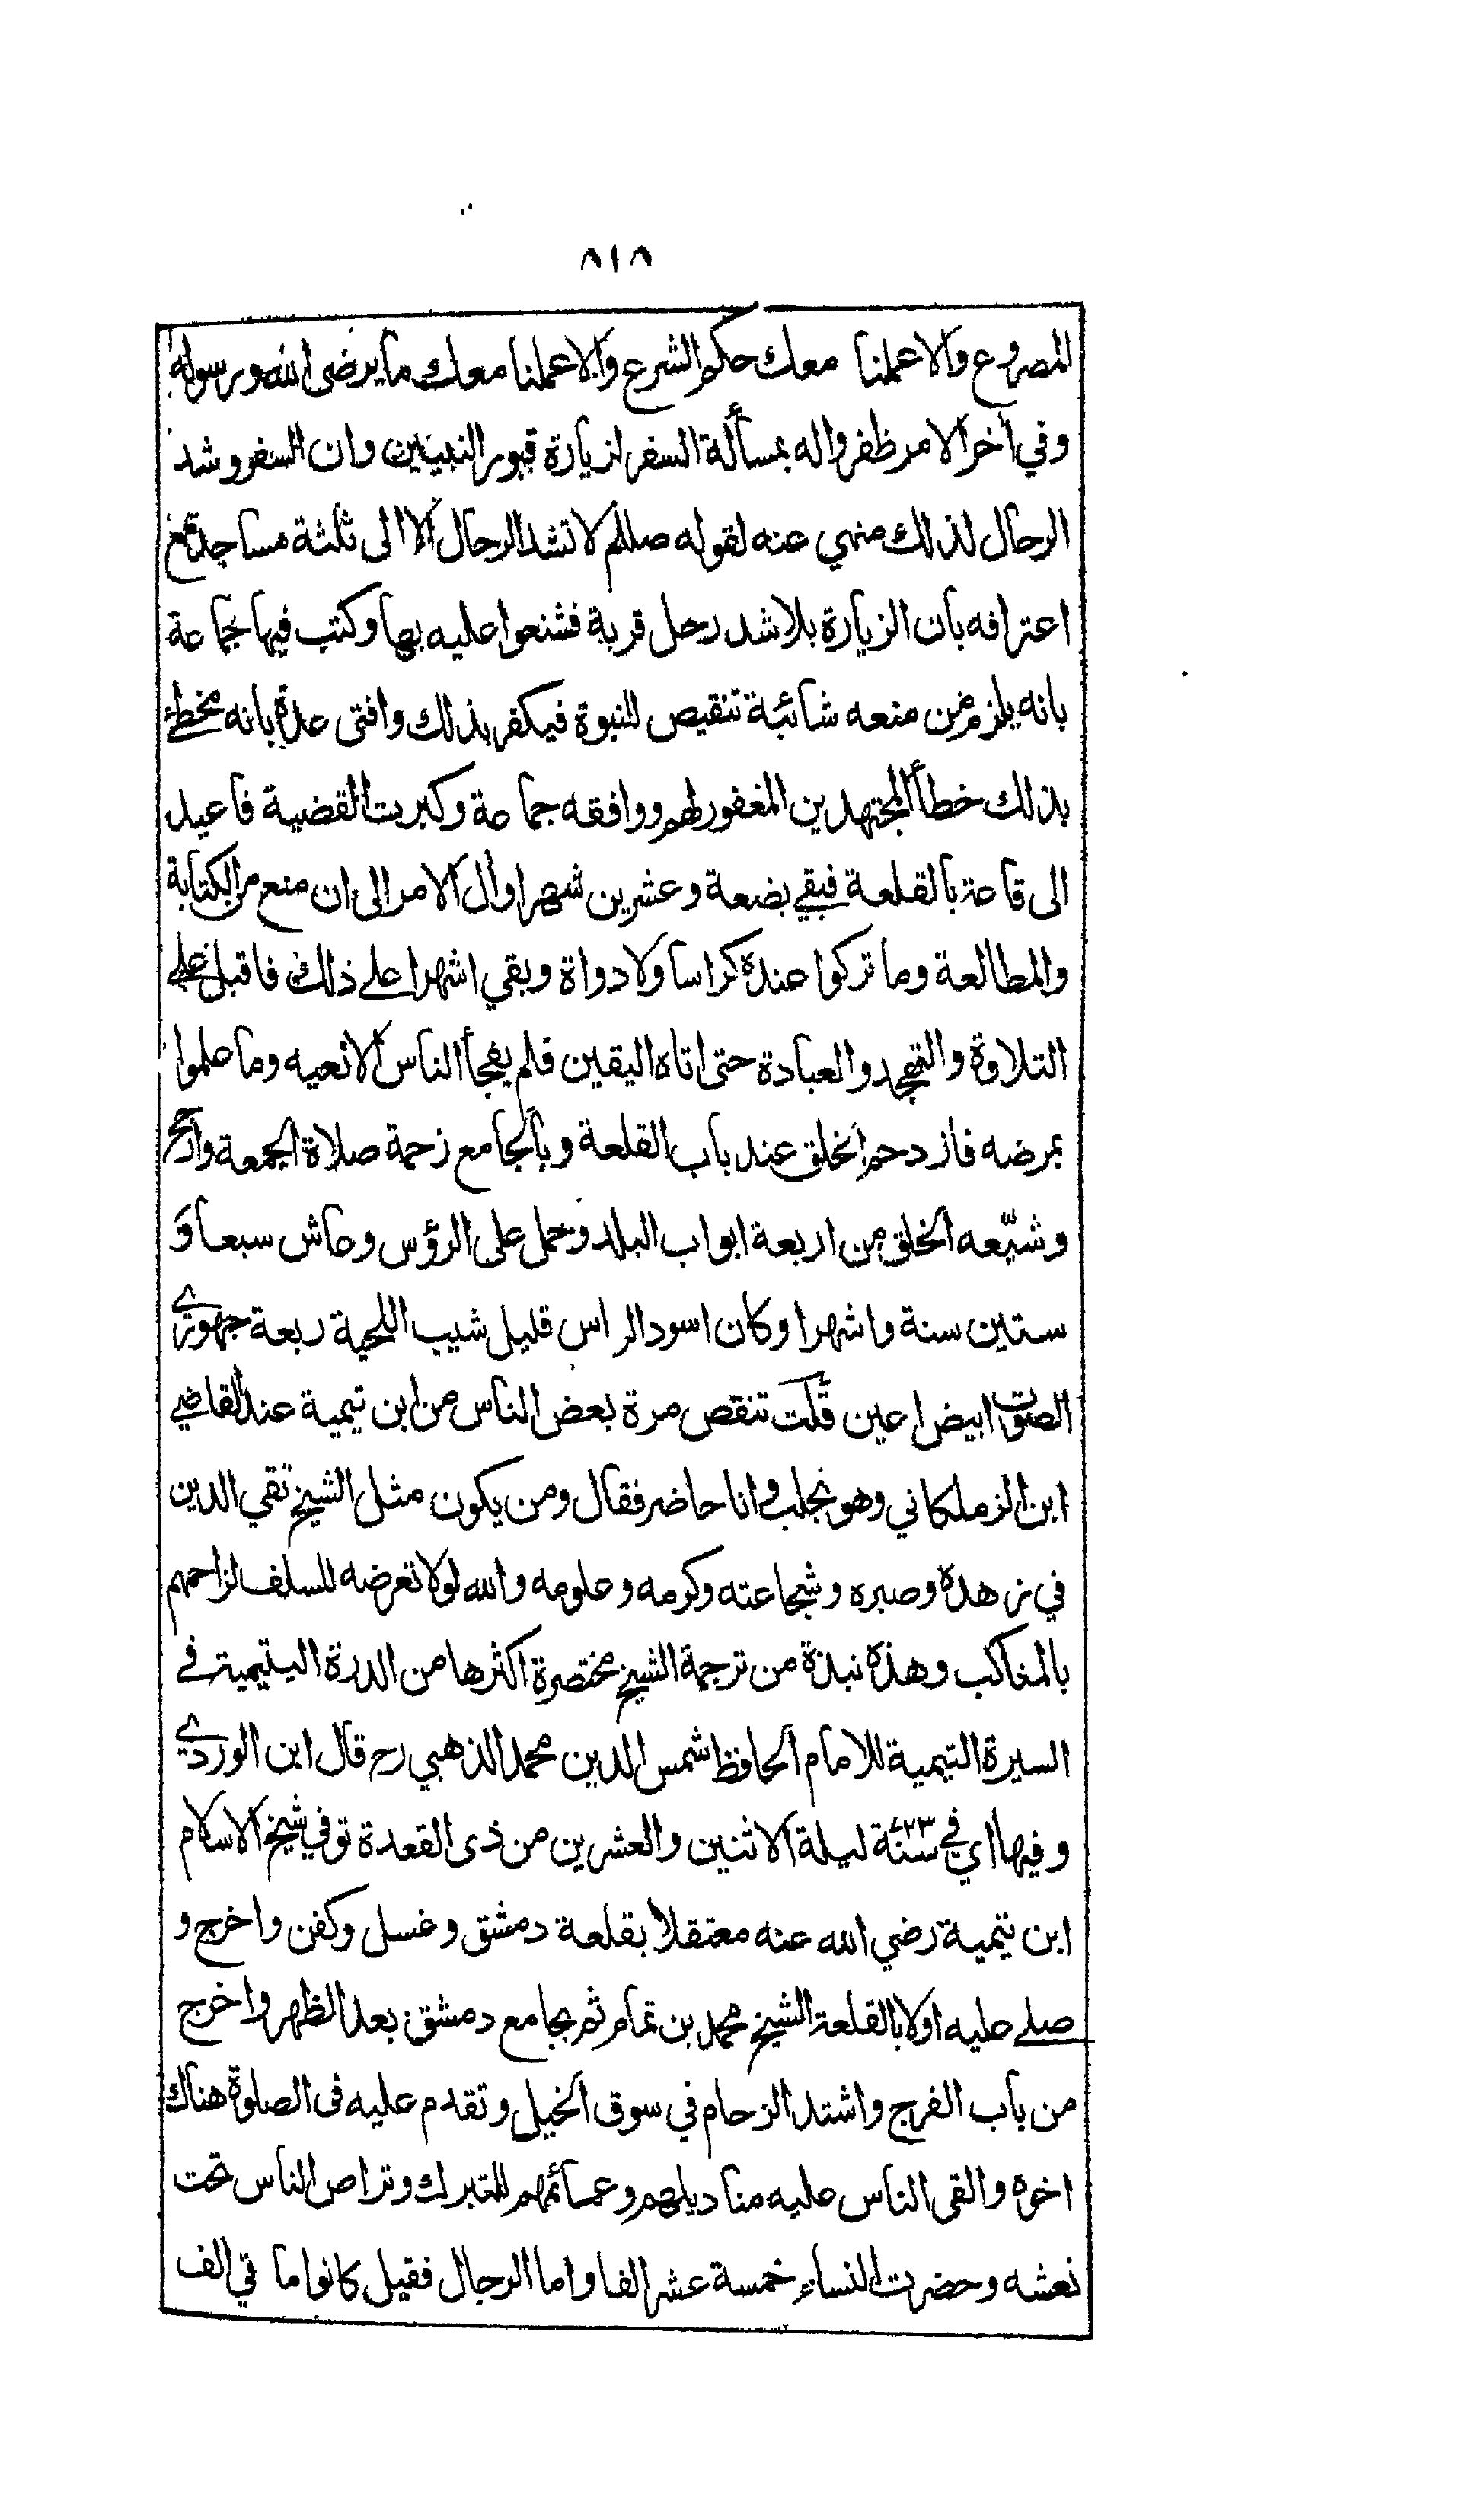 ٨١٨
المصروع والا عملنا معك حكم الشرع والا عملنا معك ما يرضى الله ورسوله
وفي اخر الامر ظفروا له بمسألة السفر لزيارة قبور النبيين وان السفر وشد
الرحال لذلك منهي عنه لقوله صللم لا تشد الرحال الا الى ثلثة مساجد مع
اعترافه بان الزيارة بلا شد رحل قربة فشنعوا عليه بها وكتب فيها جماعة
بانه يلزم من منعه شائبة تنقيص للنبوة فيكفر بذلك وافتى عدة بانه مخطئ
بذلك خطأ المجتهدين المغفور لهم ووافقه جماعة وكبرت القضية فاعيد
الى قاعة بالقلعة فبقي بضعة وعشرين شهرا وآل الامر الى ان منع من الكتابة
والمطالعة وما تركوا عنده كراسا ولا دواة وبقي اشهرا على ذلك فاقبل على
التلاوة والتهجد والعبادة حتى اتاه اليقين فلم يفجأ الناس الا نعيه وما علموا
بمرضه فازدحم الخلق عند باب القلعة وبالجامع زحمة صلاة الجمعة وارجح
وشيّعه الخلق من اربعة ابواب البلد وحمل على الرؤس وعاش سبعا و
ستين سنة واشهرا وكان اسود الراس قليل شيب اللحية ربعة جهوري
الصوت ابيض اعين قلت تنقص مرة بعض الناس من ابن تيمية عند القاضي
ابن الزملكاني وهو بحلب وانا حاضر فقال ومن يكون مثل الشيخ تقي الدين
في زهده وصبره وشجاعته وكرمه وعلومه والله لولا تعرضه للسلف لزاحمهم
بالمناكب وهذه نبذة من ترجمة الشيخ مختصرة اكثرها من الدرة اليتيمية في
السيرة التيمية للامام الحافظ شمس الدين محمد الذهبي رح قال ابن الوردي
وفيها اي في سنة ليلة الاثنين والعشرين من ذى القعدة توفي شيخ الاسلام
ابن تيمية رضي الله عنه معتقلا بقلعة دمشق وغسل وكفن واخرج و
صلى عليه اولا بالقلعة الشيخ محمد بن تمام ثم بجامع دمشق بعد الظهر واخرج
من باب الفرج واشتد الزحام في سوق الخيل وتقدم عليه فى الصلوة هناك
اخوه والقى الناس عليه مناديلهم وعمائمهم للتبرك وتراص الناس تحت
نعشه وحضرت النساء خمسة عشر الفا واما الرجال فقيل كانوا مائتي الف